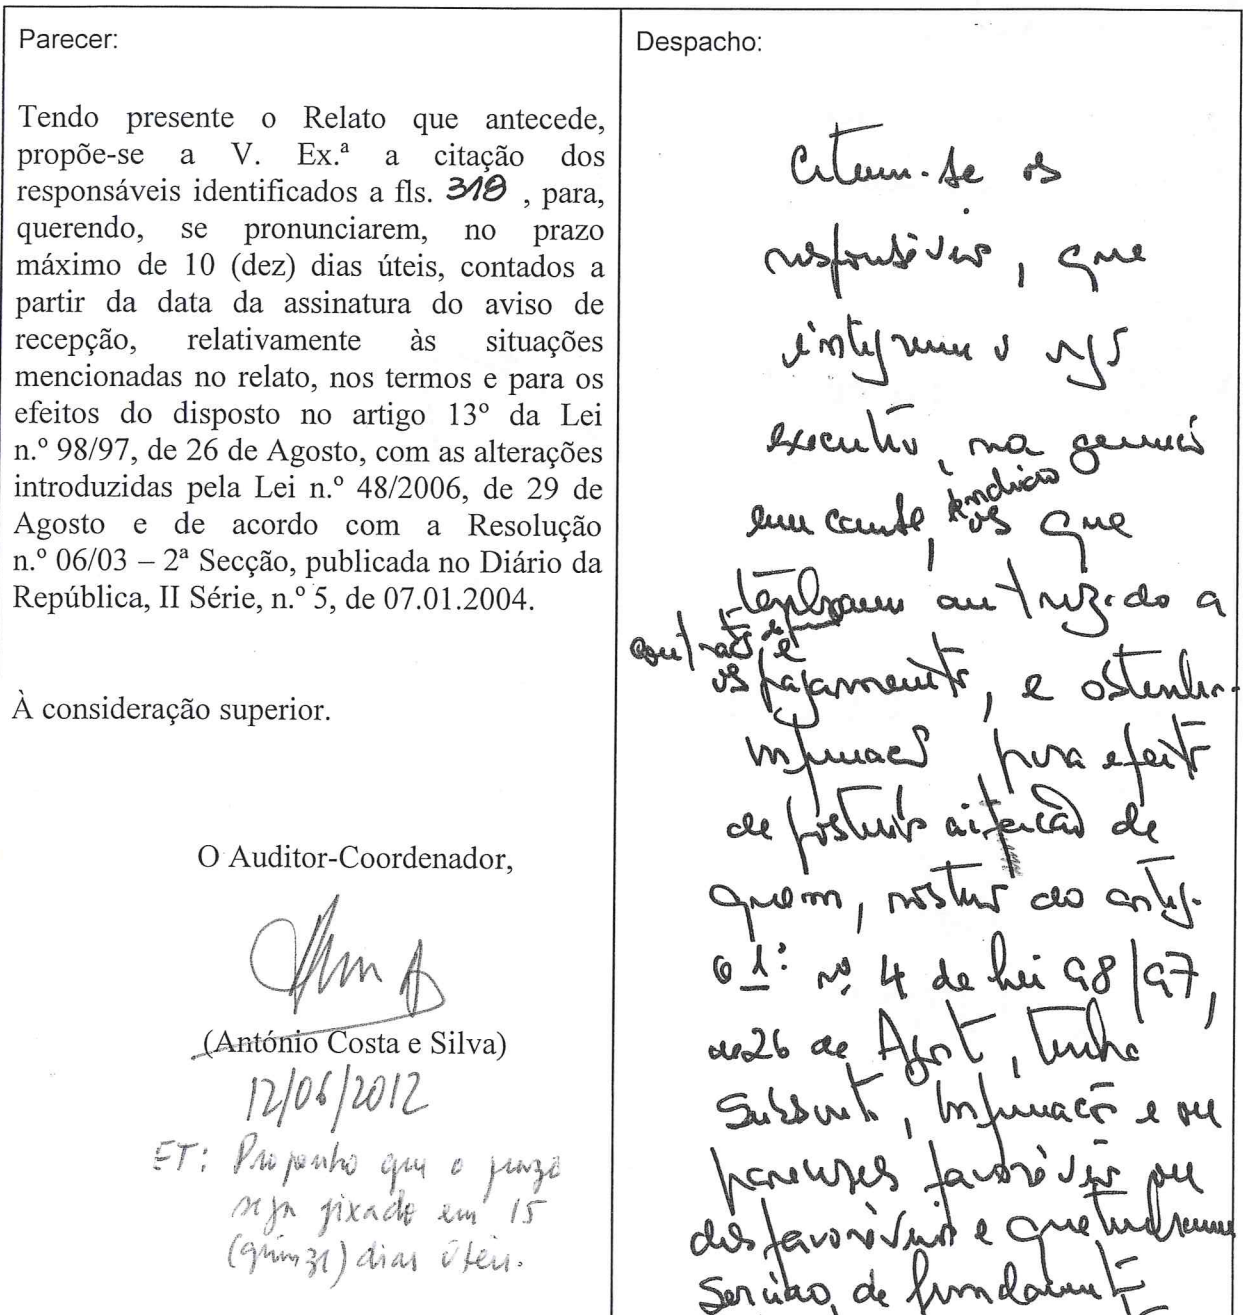 Parecer:
Tendo presente o Relato que antecede,
propõe-se a V. Ex.ª a citação dos
responsáveis identificados a fls. 318 , para,
querendo, se pronunciarem, no prazo
máximo de 10 (dez) dias úteis, contados a
partir da data da assinatura do aviso de
recepção, relativamente às situações
mencionadas no relato, nos termos e para os
efeitos do disposto no artigo 13º da Lei
n.º 98/97, de 26 de Agosto, com as alterações
introduzidas pela Lei n.º 48/2006, de 29 de
Agosto e de acordo com a Resolução
n.º 06/03 – 2ª Secção, publicada no Diário da
República, II Série, n.º 5, de 07.01.2004.
À consideração superior.
O Auditor-Coordenador,
(António Costa e Silva)
12/06/2012
ET: Proponho que o prazo
seja fixado em 15
(quinze) dias úteis.
Despacho:
Citem-se os
responsáveis, que
executivo, na gerência
em causa, os que
autorizado a
os pagamentos, e
para efeito
de posterior aferição de
quem,
nº 4 da Lei 98/97,
de 26 de Agosto, tenha
informação e ou
pareceres favoráveis ou
desfavoráveis e que
servido de fundamento